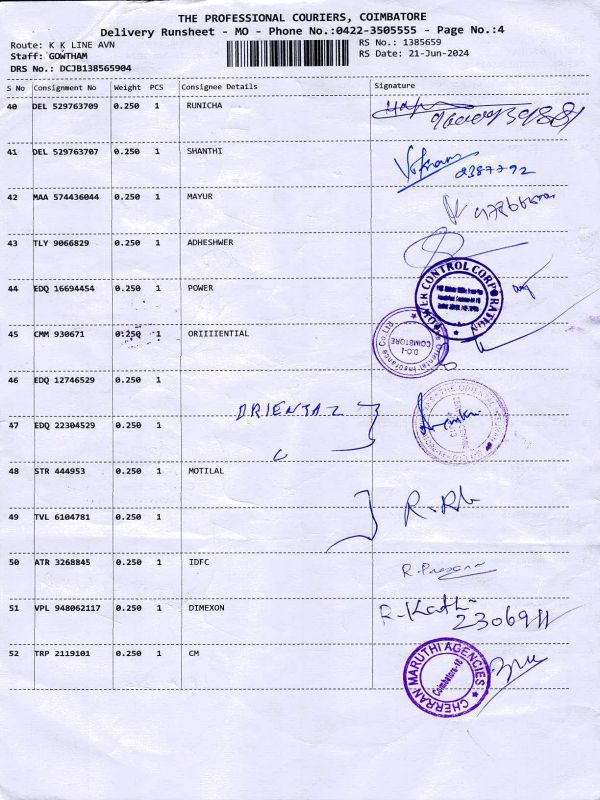 THE PROFESSIONAL COURIERS, COIMBATORE
Delivery Runsheet - MO - Phone No.:0422-3505555 - Page No.:4
Route: K K LINE AVN
RS No.: 1385659
Staff: GOWTHAM
RS Date: 21-Jun-2024
DRS No.: DCJB138565904
S No Consignment No Weight PCS Consignee Details Signature
40 DEL 529763709 0.250 1 RUNICHA
41 DEL 529763707 0.250 1 SHANTHI
2387792
42 MAA 574436044 0.250 1 MAYUR
43 TLY 9066829 0.250 1 ADHESHWER
44 EDQ 16694454 0.250 1 POWER
POWER CONTROL CORPORATION
45 CMM 930671 0.250 1 ORIIIIENTIAL
Oriental Insurance Co Ltd
D.O-1
COIMBTORE
46 EDQ 12746529 0.250 1
ORIENTAL
THE ORIENTAL
47 EDQ 22304529 0.250 1
48 STR 444953 0.250 1 MOTILAL
49 TVL 6104781 0.250 1
50 ATR 3268845 0.250 1 IDFC
51 VPL 948062117 0.250 1 DIMEXON
R. Kathi
52 TRP 2119101 0.250 1 CM
CHERRAN MARUTHI AGENCIES
Coimbatore-18